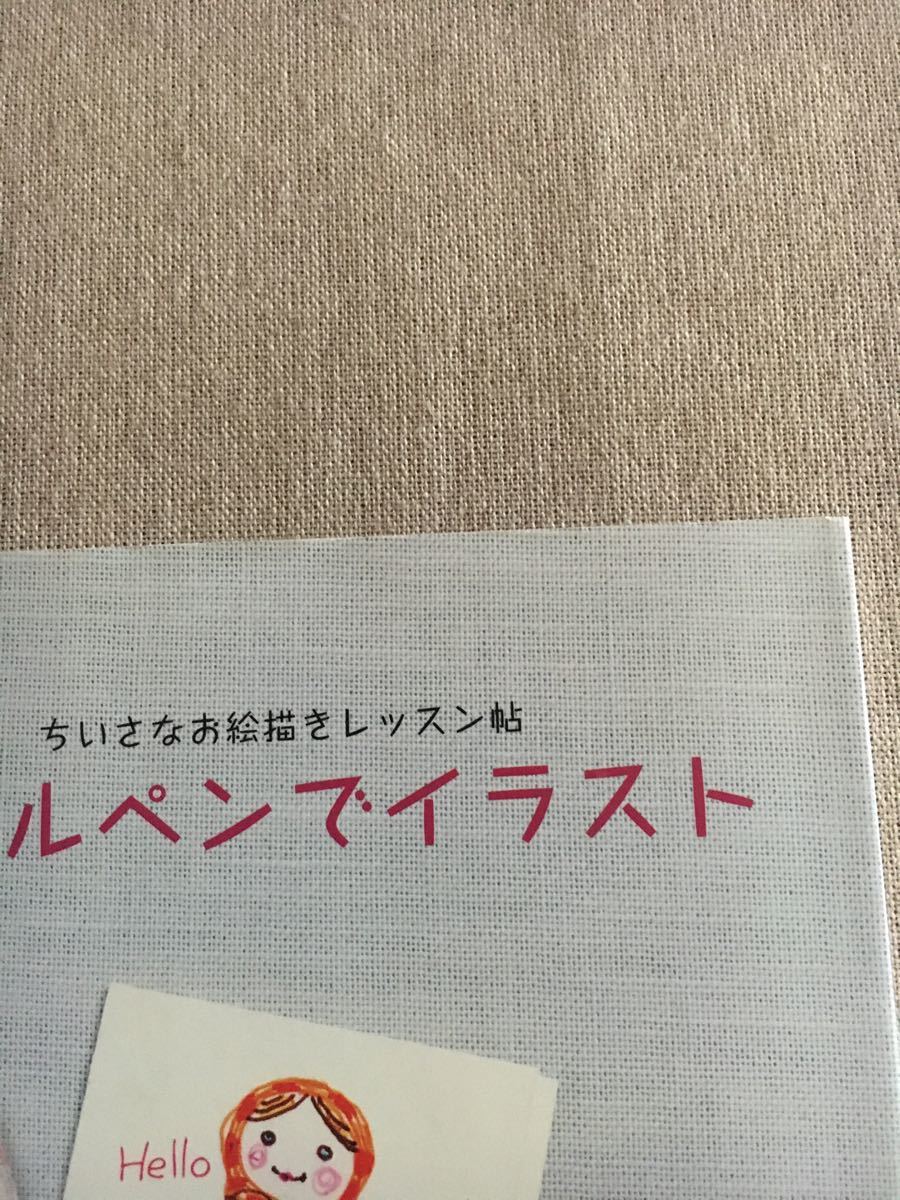 ちいさなお絵描きレッスン帖
ルペンでイラスト
Hello